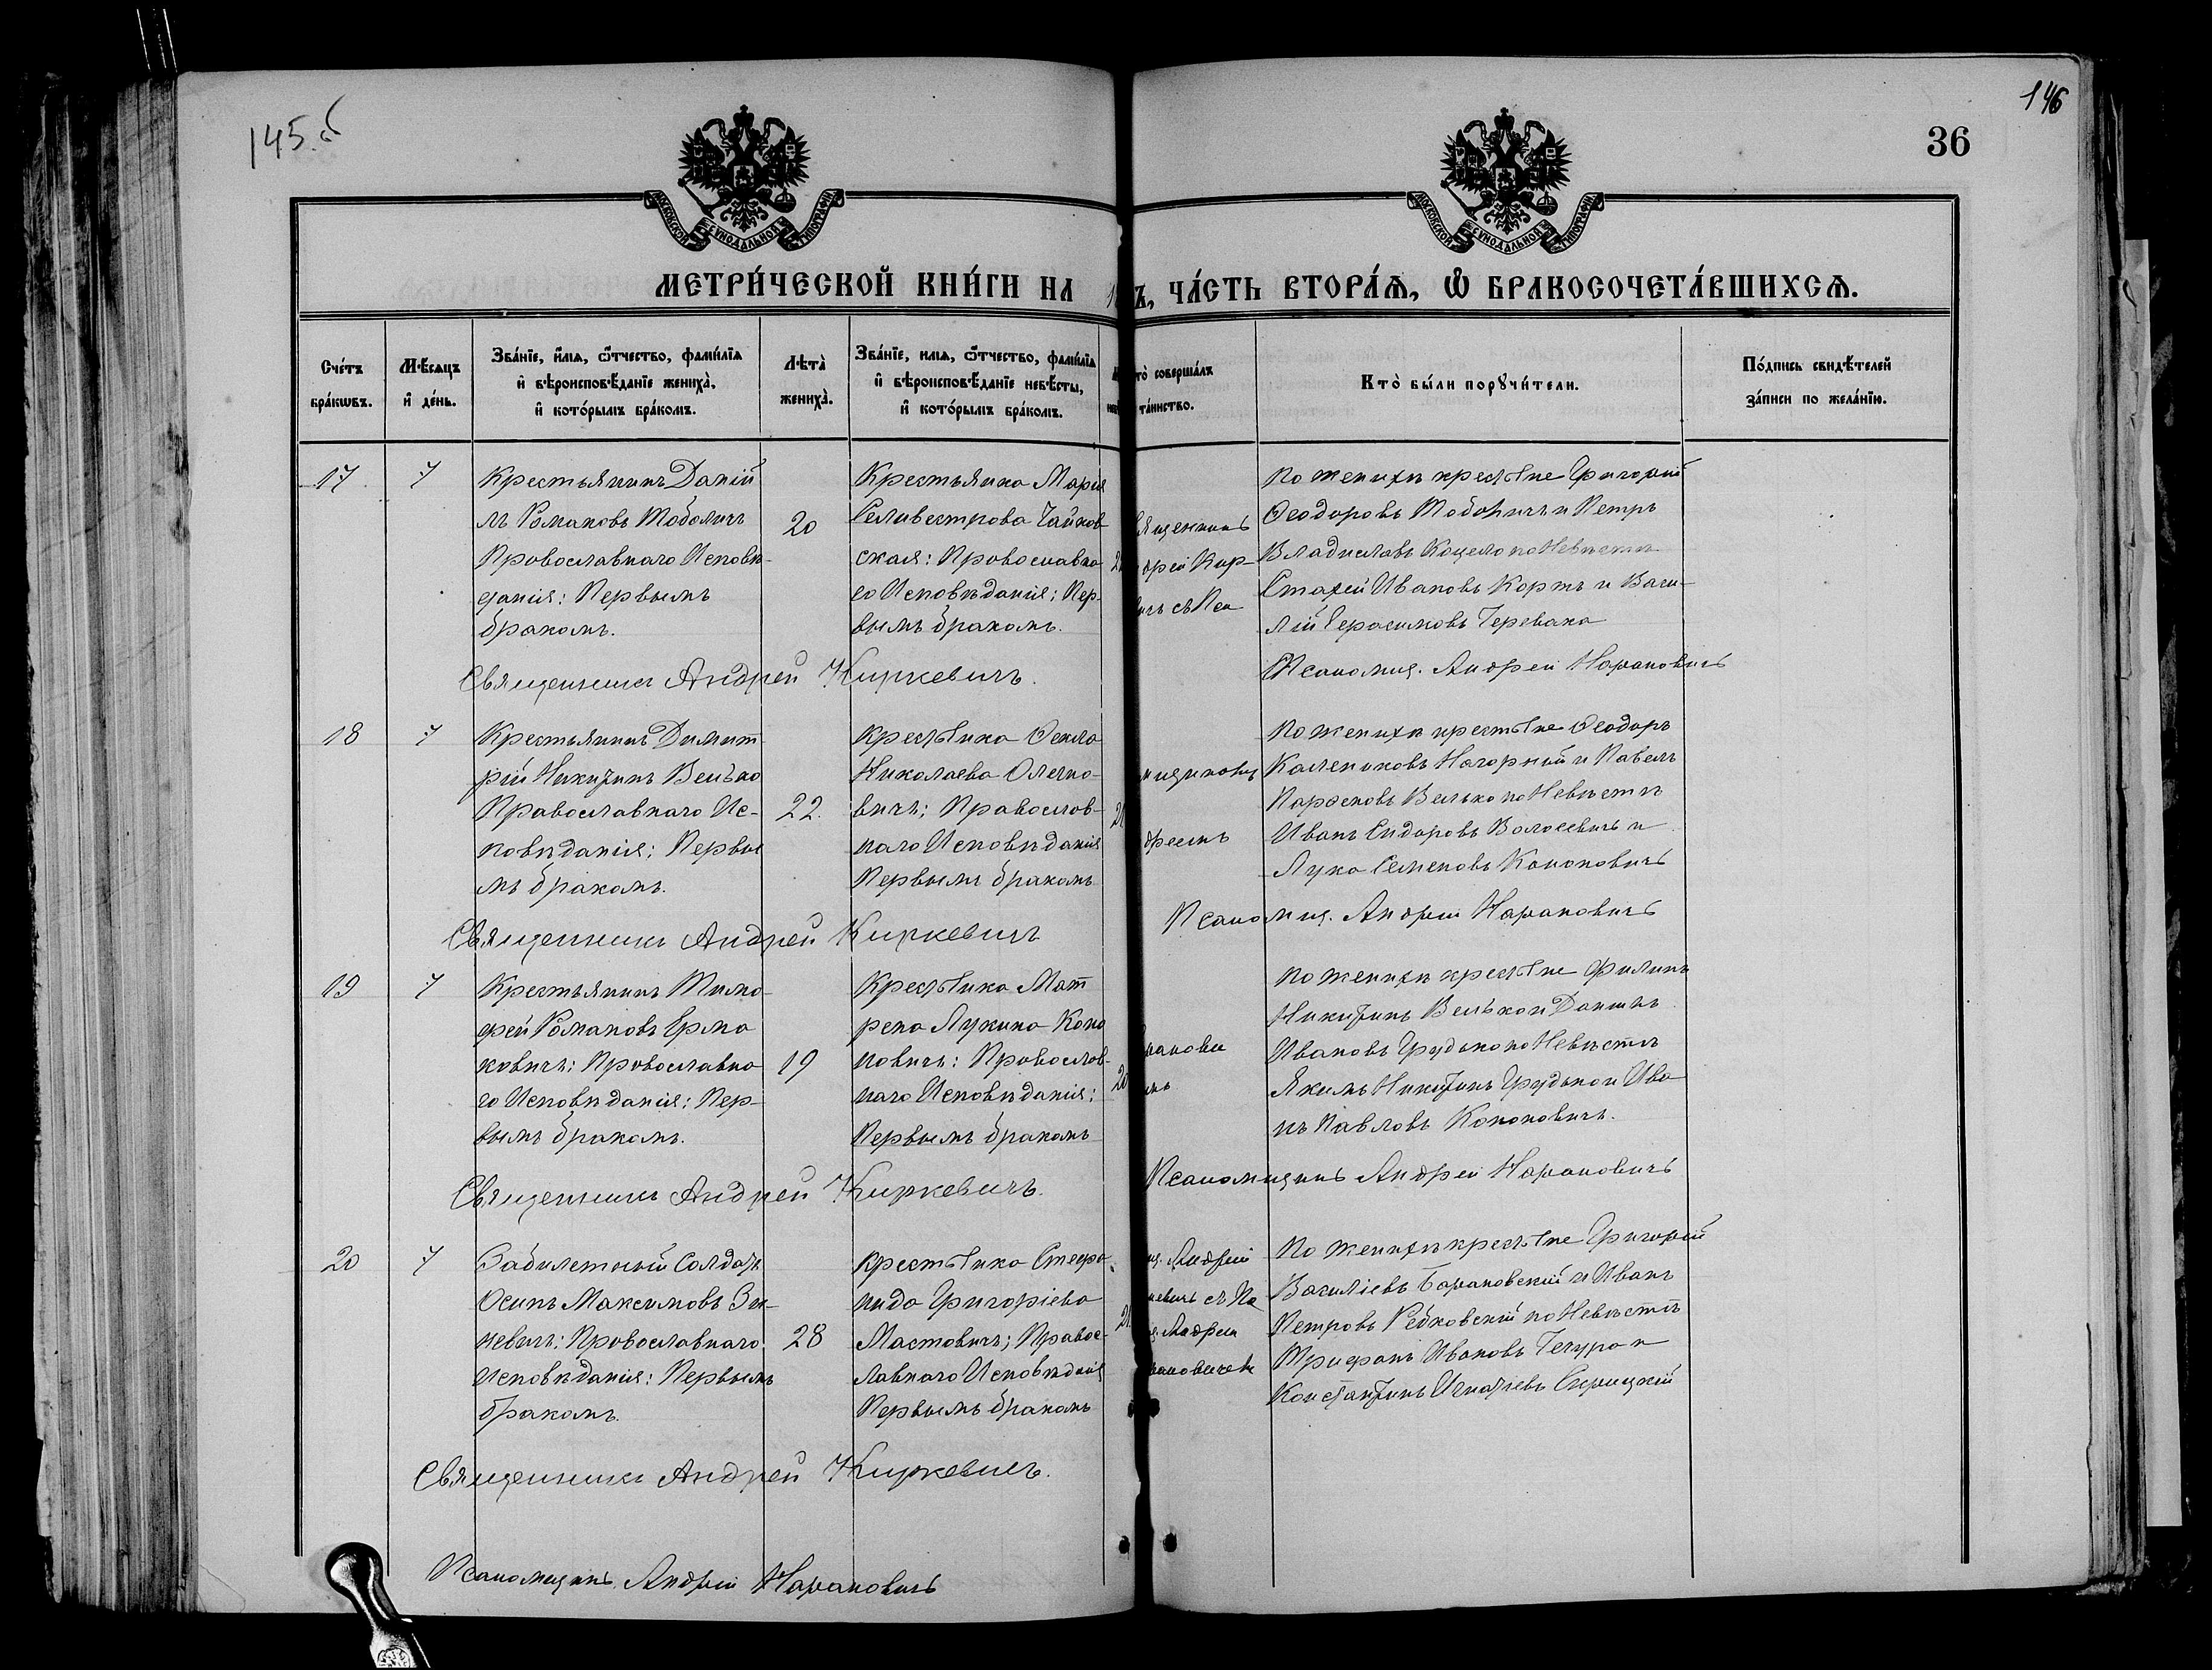 145.об
146
36
МОСКОВСКОЙ СУНОДАЛЬНОЙ ТИПОГРАФІИ
МОСКОВСКОЙ СУНОДАЛЬНОЙ ТИПОГРАФІИ
МЕТРИ́ЧЕСКОЙ КНИ́ГИ НА 1
Ъ, ЧА́СТЬ ВТОРА́Ѧ, Ѿ БРАКОСОЧЕТА́ВШИХСѦ.
Сче́тъ
бра́кѡвъ.
Мѣ́сѧцъ
и҆ де́нь.
Зва́нїе, и҆́мѧ, ѻ҆́тчество, фами́лїѧ
и҆ вѣроисповѣ́данїе жениха̀,
и҆ кото́рымъ бра́комъ.
Лѣта̀
жениха̀.
Зва́нїе, имѧ, ѻ҆́тчество, фами́лїѧ
и҆ вѣроисповѣ́данїе невѣ́сты,
и҆ кото́рымъ бра́комъ.
то̀ соверша́лъ
та́инство.
Кто̀ бы́ли порꙋчи́тели.
По́дпись свидѣ́телей
за́писи по жела́нїю.
17
7
Крестьянинъ Даніи
лъ Романовъ Тоболичъ
Провославнаго Исповѣ-
данія: Первымъ
бракомъ.
20
Крестьянка Марія
Селивестрова Чайков-
ская: Провославна
го Исповѣданія; Пер-
вымъ бракомъ.
По женихѣ крестьяне Григорій
Ѳеодоровъ Тоболичъ и Петръ
Владиславъ по Невѣстѣ
Ивановъ Кортъ и Васи-
лій Герасимовъ Черевака
Священникъ Андрей Киркевичъ.
Псаломщ. Андрей Нарановичъ
18
7
Крестьянинъ Димит
рій Никитинъ Велько
Православнаго Ис-
повѣданія; Первы
мъ бракомъ.
22.
Крестьянка
Николаева
вичъ; Православ-
наго Исповѣданія
Первымъ бракомъ
21
По женихѣ крестьяне Ѳеодоръ
Нагорный и Павелъ
Велько по Невѣстѣ
Иванъ Сидоровъ Волосевичъ и
Лука Семеновъ Кононовичъ
Священникъ Андрей Киркевичъ
Псаломщ. Андрей Нарановичъ
19
7
Крестьянинъ Тимо-
фей Романовъ Ерма
ковичъ: Провославна
го Исповѣданія: Пер-
вымъ бракомъ.
19
Крестьянка Мат
рена Лукина Коно
новичъ: Провослав-
наго Исповѣданія;
Первымъ бракомъ
20
По женихѣ крестьяне Филипъ
Никитинъ Велько и Даниилъ
Ивановъ Грудько по Невѣстѣ
Якимъ Никитинъ Грудько и Ива
нъ Павловъ Кононовичъ.
Священникъ Андрей Киркевичъ.
Псаломщикъ Андрей Нарановичъ
20
7
Забилетный Солдатъ
Осипъ Максимовъ Зи-
невичъ: Провославнаго
Исповѣданія: Первымъ
бракомъ.
28
Крестьянка Стефа
нида Григоріева
Мастовичъ; Правос-
лавнаго Исповѣданія
Первымъ бракомъ
21
По женихѣ крестьяне Григорій
Василіевъ Барановскій и Иванъ
Петровъ по Невѣстѣ
Трифонъ Ивановъ и
Константинъ Игнатіевъ
Священникъ Андрей Киркевичъ.
Псаломщикъ Андрей Нарановичъ